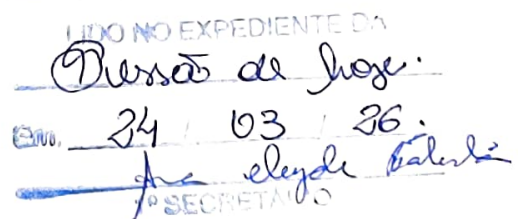 LIDO NO EXPEDIENTE DA
Sessão de hoje.
Em, 24 / 03 / 26.
Ana
1º SECRETÁRIO